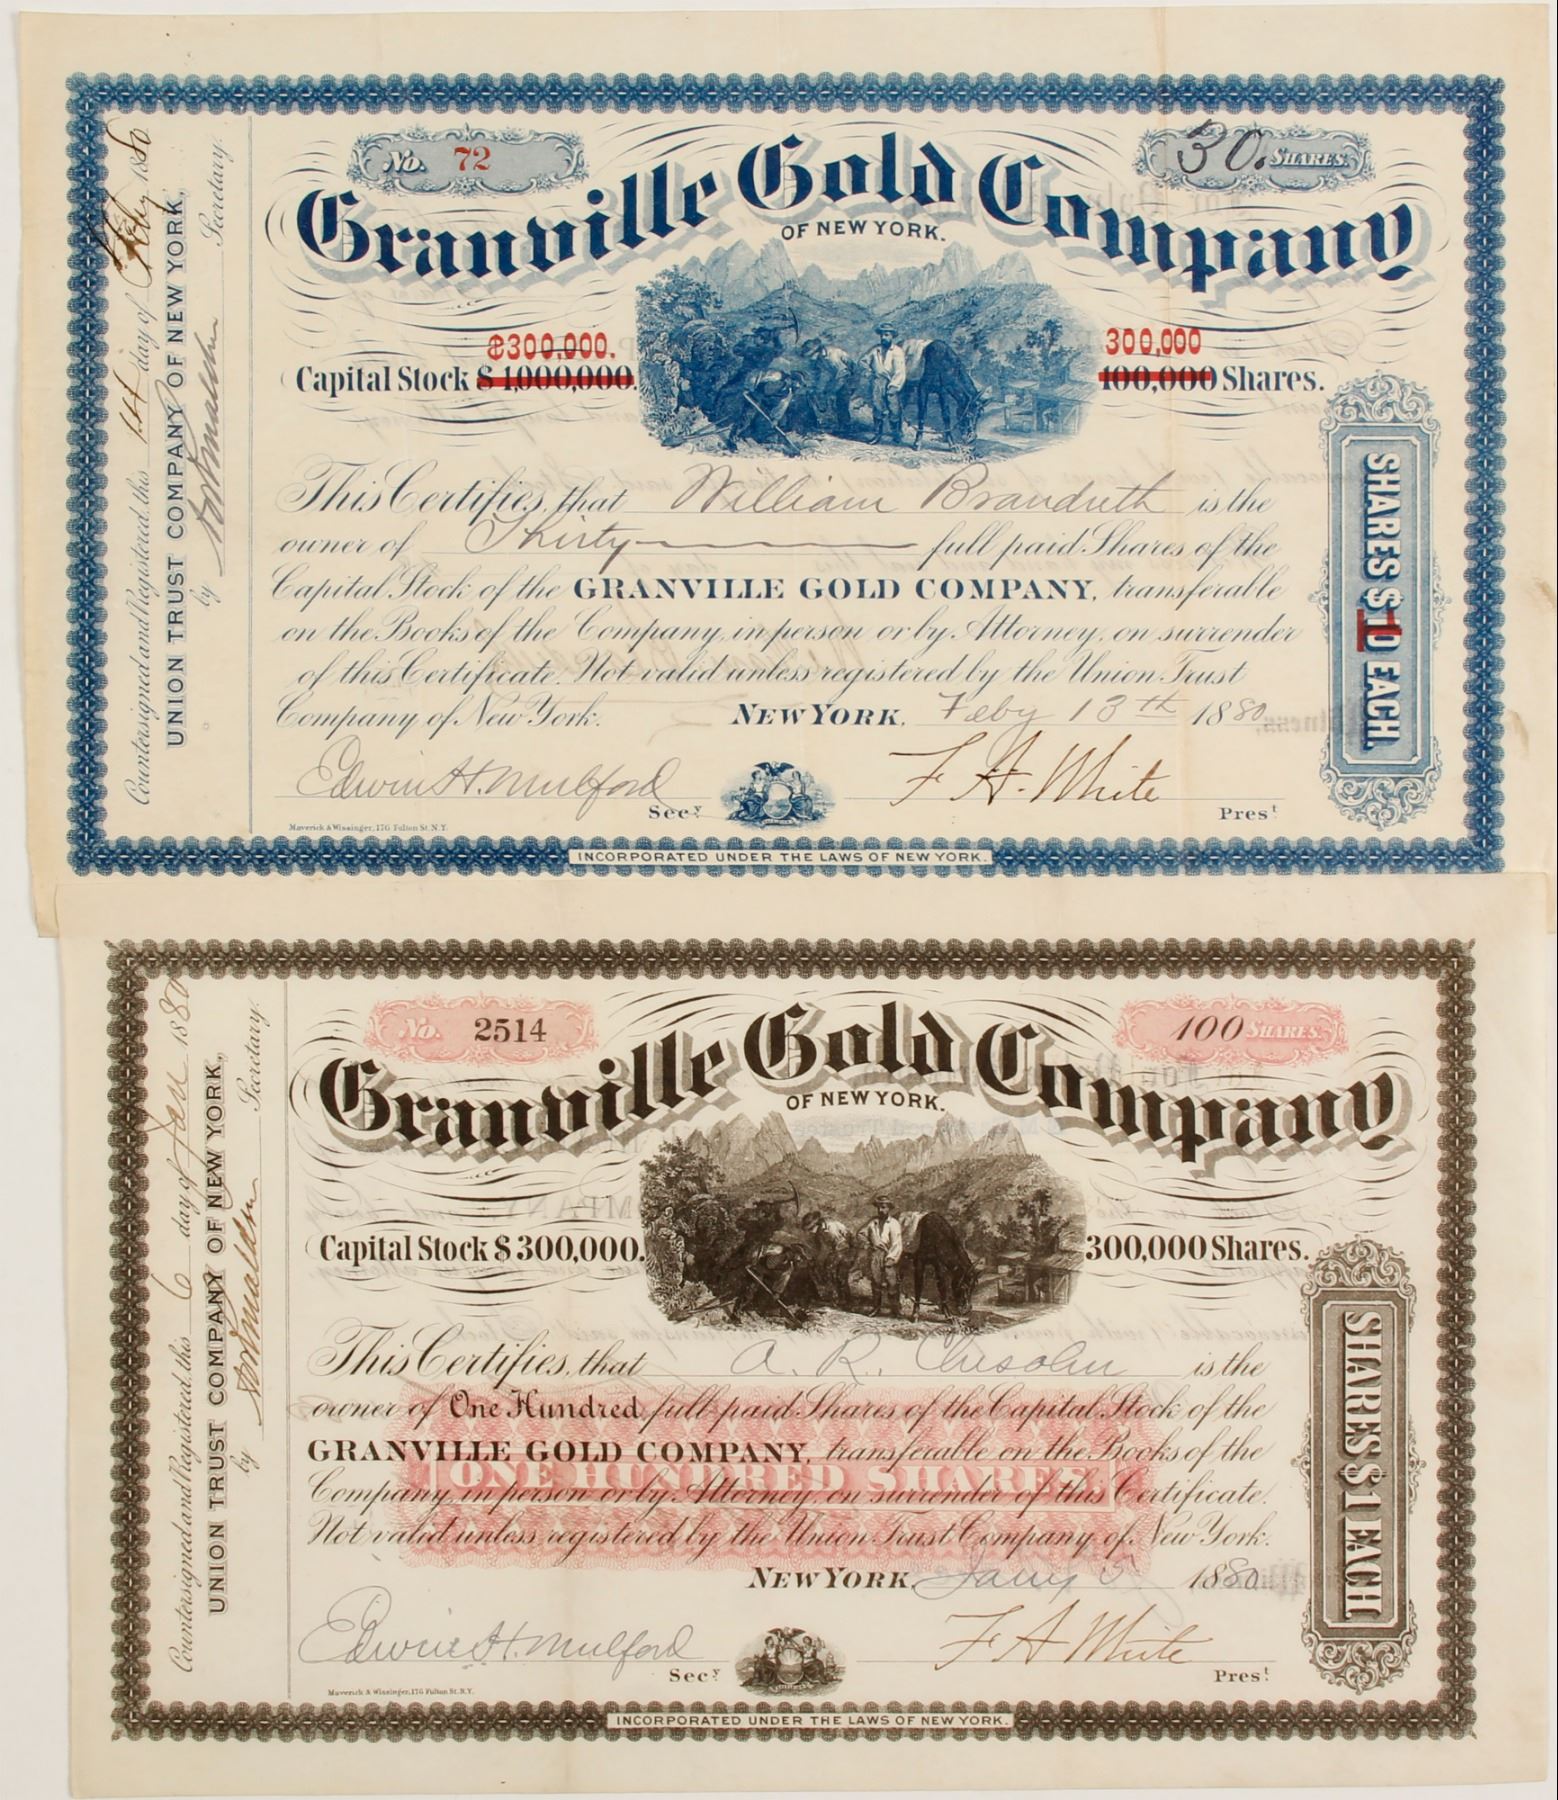 No. 72
30. SHARES.
Granville Gold Company
OF NEW YORK.
$300,000.
300,000
Capital Stock $1,000,000.
100,000 Shares.
This Certifies, that William Brandreth is the
owner of Thirty full paid Shares of the
Capital Stock of the GRANVILLE GOLD COMPANY, transferable
on the Books of the Company, in person or by Attorney, on surrender
of this Certificate. Not valid unless registered by the Union Trust
Company of New York. NEW YORK, Feby 13th 1880
Edwin H. Mulford Secy
F. A. White Prest
Maverick & Wissinger, 176 Fulton St. N.Y.
INCORPORATED UNDER THE LAWS OF NEW YORK.
SHARES $10 EACH.
1
Countersigned and Registered, this day of 1880
UNION TRUST COMPANY OF NEW YORK,
by Secretary.
No. 2514
100 SHARES.
Granville Gold Company
OF NEW YORK.
Capital Stock $300,000.
300,000 Shares.
This Certifies, that A. R. Chisolm is the
owner of One Hundred full paid Shares of the Capital Stock of the
GRANVILLE GOLD COMPANY, transferable on the Books of the
ONE HUNDRED SHARES.
Company, in person or by Attorney, on surrender of this Certificate.
Not valid unless registered by the Union Trust Company of New York.
NEW YORK, Jany 5 1880
Edwin H. Mulford Secy
F A White Prest
Maverick & Wissinger, 176 Fulton St. N.Y.
INCORPORATED UNDER THE LAWS OF NEW YORK.
SHARES $1 EACH
Countersigned and Registered, this 6 day of Jan 1880
UNION TRUST COMPANY OF NEW YORK,
by Secretary.